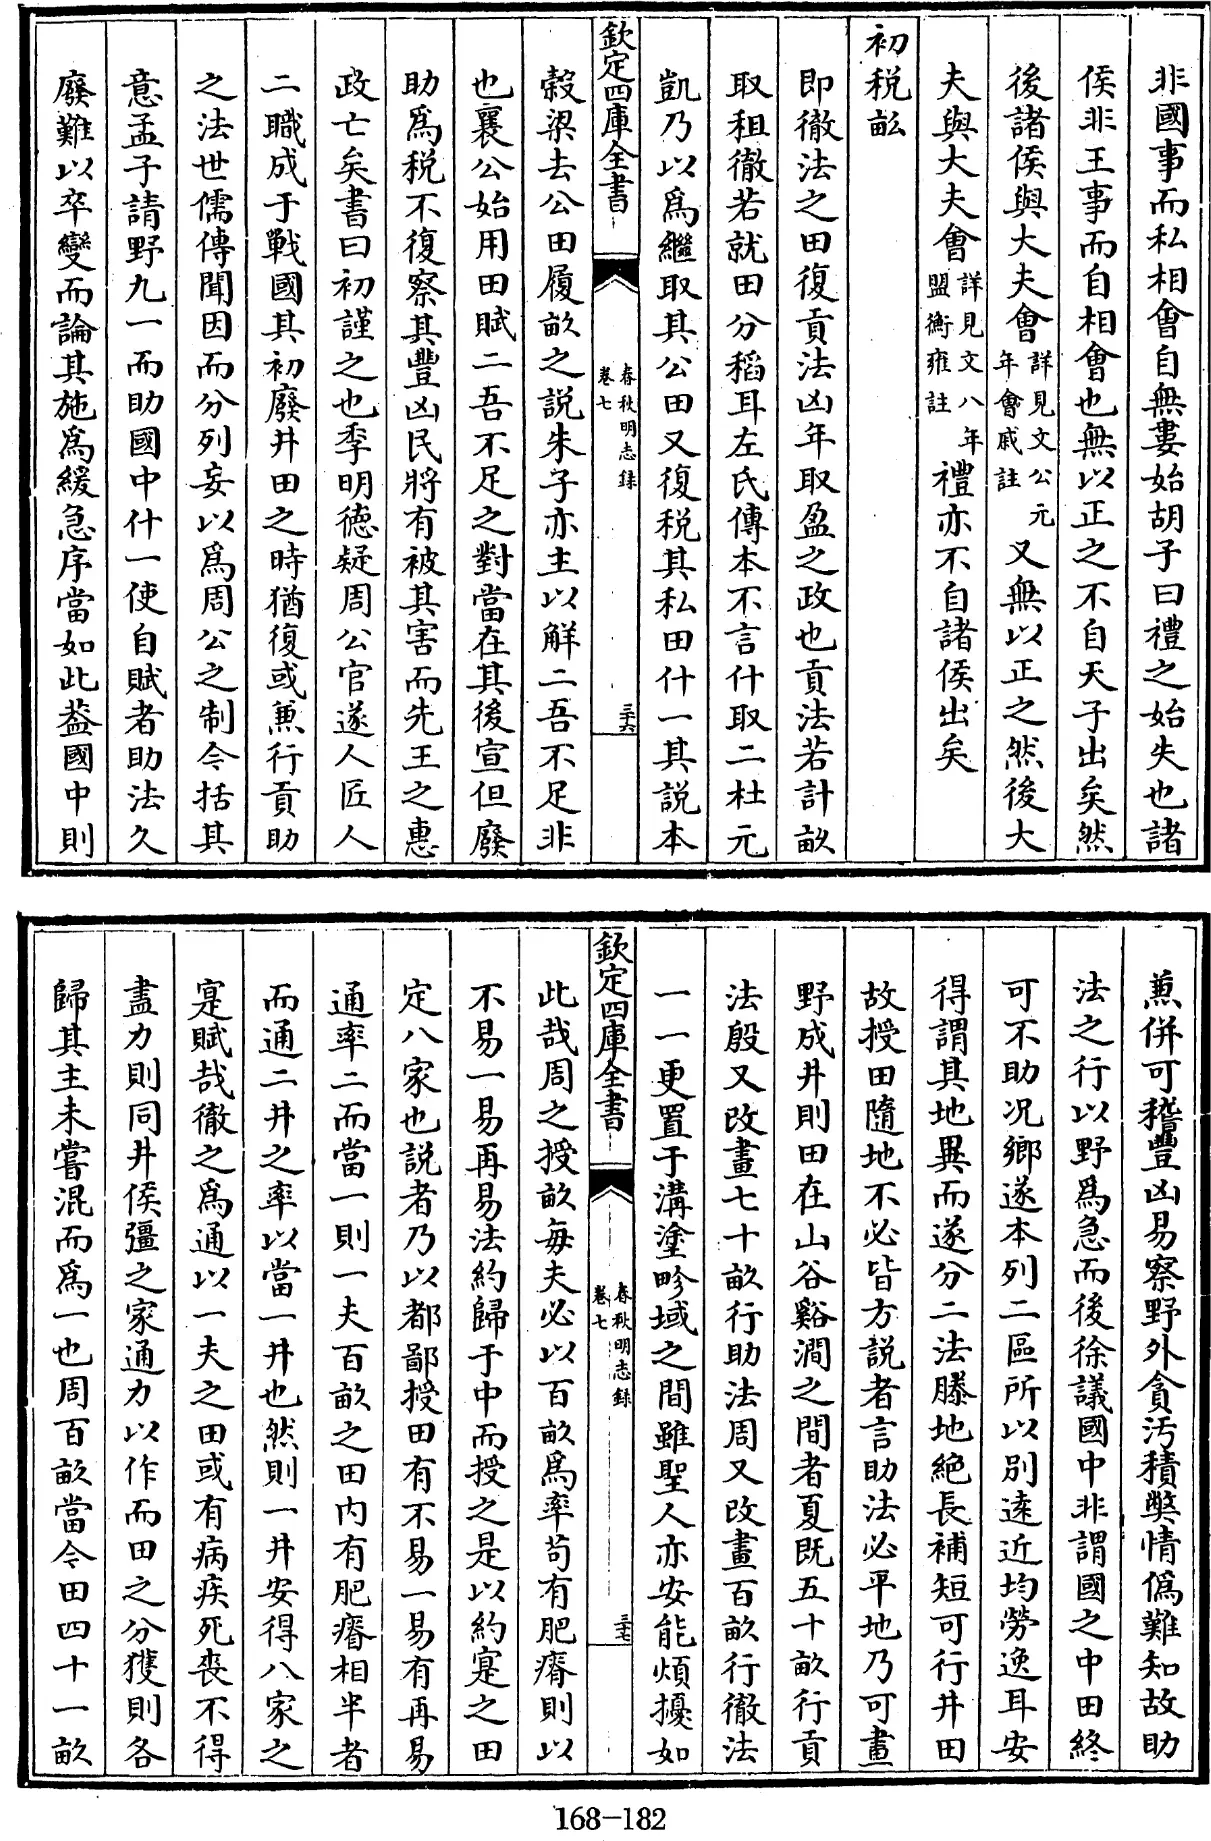 非國事而私相會自無婁始胡子曰禮之始失也諸
侯非王事而自相會也無以正之不自天子出矣然
後諸侯與大夫會詳見文公元年會戚註又無以正之然後大
夫與大夫會詳見文八年盟衡雍註禮亦不自諸侯出矣
初税畝
即徹法之田復貢法凶年取盈之政也貢法若計畝
取租徹若就田分稻耳左氏傳本不言什取二杜元
凱乃以爲繼取其公田又復税其私田什一其說本
欽定四庫全書
春秋明志録
卷七
三十六
穀梁去公田履畝之説朱子亦主以解二吾不足非
也襄公始用田賦二吾不足之對當在其後宣但廢
助爲税不復察其豐凶民將有被其害而先王之惠
政亡矣書曰初謹之也季明德疑周公官遂人匠人
二職成于戰國其初廢井田之時猶復或兼行貢助
之法世儒傳聞因而分列妄以爲周公之制今括其
意孟子請野九一而助國中什一使自賦者助法久
廢難以卒變而論其施爲緩急序當如此葢國中則
兼併可稽豐凶易察野外貪汚積獘情僞難知故助
法之行以野爲急而後徐議國中非謂國之中田終
可不助况鄉遂本列二區所以別逺近均勞逸耳安
得謂其地異而遂分二法滕地絶長補短可行井田
故授田隨地不必皆方説者言助法必平地乃可畫
野成井則田在山谷谿澗之間者夏既五十畝行貢
法殷又改畫七十畝行助法周又改畫百畝行徹法
一一更置于溝塗畛域之間雖聖人亦安能煩擾如
欽定四庫全書
春秋明志録
卷七
三十七
此哉周之授畝每夫必以百畝爲率苟有肥瘠則以
不易一易再易法約歸于中而授之是以約寔之田
定八家也説者乃以都鄙授田有不易一易有再易
通率二而當一則一夫百畝之田内有肥瘠相半者
而通二井之率以當一井也然則一井安得八家之
寔賦哉徹之爲通以一夫之田或有病疾死喪不得
盡力則同井侯彊之家通力以作而田之分獲則各
歸其主未嘗混而爲一也周百畝當今田四十一畝
168-182